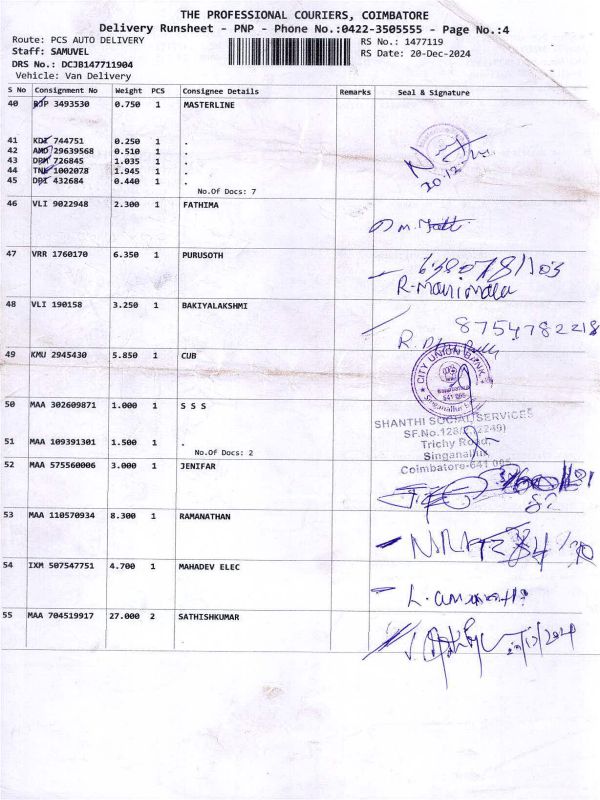 THE PROFESSIONAL COURIERS, COIMBATORE
Delivery Runsheet - PNP - Phone No.:0422-3505555 - Page No.:4
Route: PCS AUTO DELIVERY
RS No.: 1477119
Staff: SAMUVEL
RS Date: 20-Dec-2024
DRS No.: DCJB147711904
Vehicle: Van Delivery
S No Consignment No Weight PCS Consignee Details Remarks Seal & Signature
40 RJP 3493530 0.750 1 MASTERLINE
41 KDI 744751 0.250 1 .
42 AMD 29639568 0.510 1 .
43 DPM 726845 1.035 1 .
44 TNK 1002078 1.945 1 .
45 DPI 432684 0.440 1 .
20.12
No.Of Docs: 7
46 VLI 9022948 2.300 1 FATHIMA
47 VRR 1760170 6.350 1 PURUSOTH
R. Manimala
48 VLI 190158 3.250 1 BAKIYALAKSHMI
8754782218
49 KMU 2945430 5.850 1 CUB
CITY UNION BANK
641 005
Singanallur
50 MAA 302609871 1.000 1 S S S
SHANTHI SOCIAL SERVICES
51 MAA 109391301 1.500 1 .
Trichy Road,
No.Of Docs: 2
Singanallur
Coimbatore-641 005
52 MAA 575560006 3.000 1 JENIFAR
53 MAA 110570934 8.300 1 RAMANATHAN
54 IXM 507547751 4.700 1 MAHADEV ELEC
55 MAA 704519917 27.000 2 SATHISHKUMAR